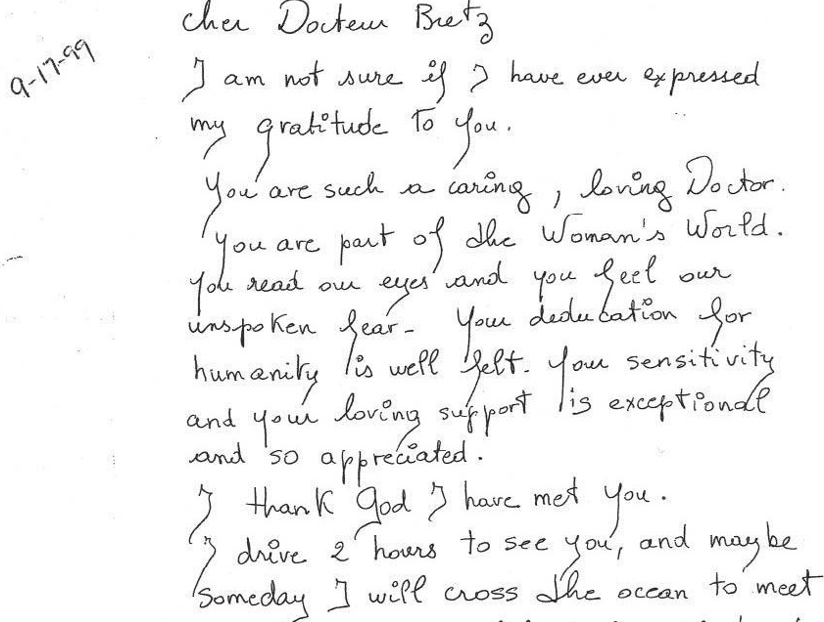 9-17-99
Cher Docteur Bretz
I am not sure if I have ever expressed
my gratitude to you.
You are such a caring, loving Doctor.
You are part of the Woman's World.
You read our eyes and you feel our
unspoken fear- Your deducation for
humanity is well felt. Your sensitivity
and your loving support is exceptional
and so appreciated.
I thank God I have met you.
I drive 2 hours to see you, and maybe
someday I will cross the ocean to meet